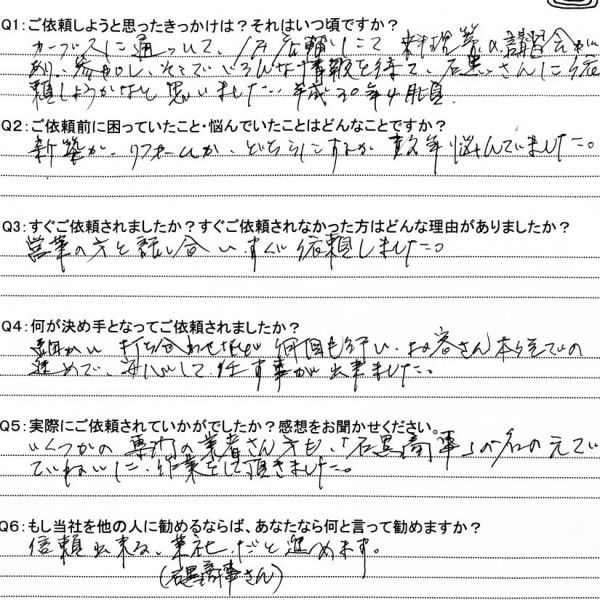 Q1:ご依頼しようと思ったきっかけは？それはいつ頃ですか？
カーブスに通っていて、1F店舗にて 料理等の講習会が
有り、参加し、そこでいろんな情報を得て、石黒さんに依
頼しようかなと思いました。平成30年4月頃
Q2:ご依頼前に困っていたこと・悩んでいたことはどんなことですか？
新築か、リフォームか、どちらにするか 数年悩んでいました。
Q3:すぐご依頼されましたか？すぐご依頼されなかった方はどんな理由がありましたか？
営業の方と話し合い、すぐ依頼しました。
Q4:何が決め手となってご依頼されましたか？
細かい 打ち合わせを 何回も行い、お客さん本位での
進めで、安心して任す事が出来ました。
Q5:実際にご依頼されていかがでしたか？感想をお聞かせください。
いくつかの 専門の業者さん方も、「石黒商事」の名のもとで
ていねいに、作業をして頂きました。
Q6:もし当社を他の人に勧めるならば、あなたなら何と言って勧めますか？
信頼出来る、業社だと進めます。
(石黒商事さん)